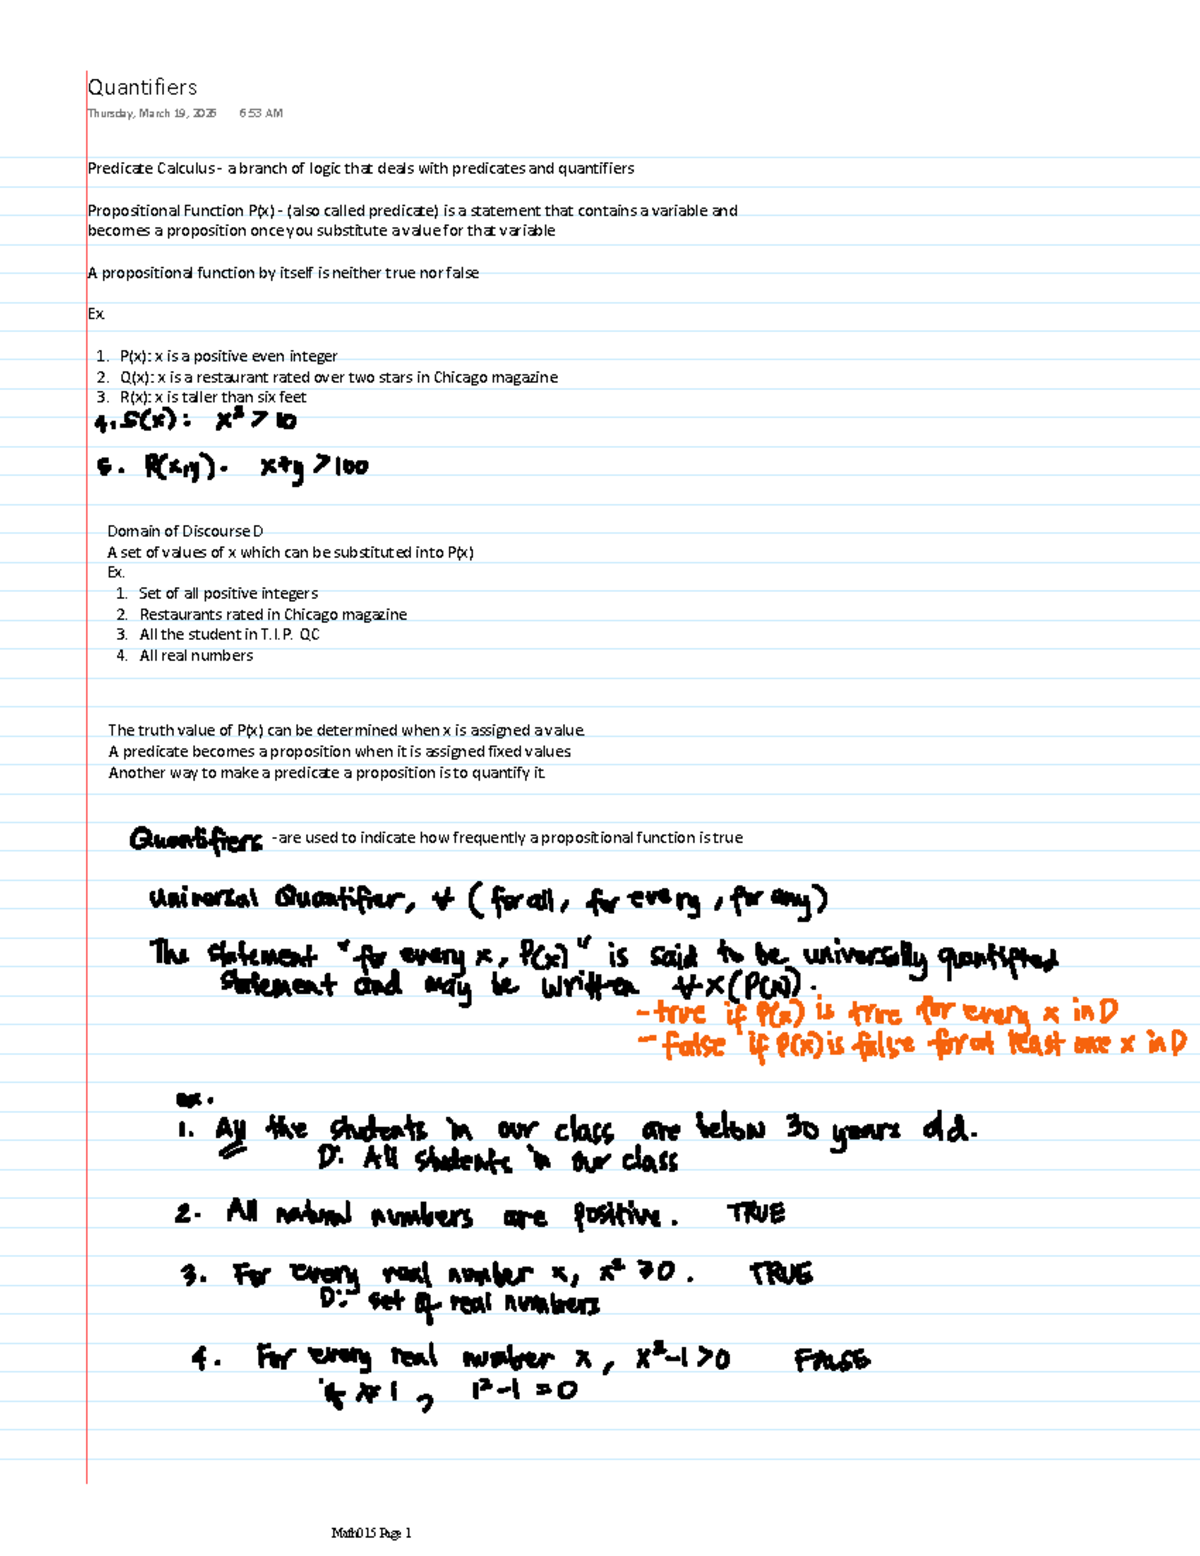 Quantifiers
Thursday, March 19, 2026 6:53 AM
Predicate Calculus - a branch of logic that deals with predicates and quantifiers
Propositional Function P(x) - (also called predicate) is a statement that contains a variable and
becomes a proposition once you substitute a value for that variable
A propositional function by itself is neither true nor false
Ex.
1. P(x): x is a positive even integer
2. Q(x): x is a restaurant rated over two stars in Chicago magazine
3. R(x): x is taller than six feet
4. S(x): x² > 10
5. R(x,y). x+y > 100
Domain of Discourse D
A set of values of x which can be substituted into P(x)
Ex.
1. Set of all positive integers
2. Restaurants rated in Chicago magazine
3. All the student in T.I.P. QC
4. All real numbers
The truth value of P(x) can be determined when x is assigned a value.
A predicate becomes a proposition when it is assigned fixed values
Another way to make a predicate a proposition is to quantify it.
Quantifiers - are used to indicate how frequently a propositional function is true
Universal Quantifier, ∀ (for all, for every, for any)
The statement "for every x, P(x)" is said to be universally quantified
statement and may be written ∀x(P(x)).
- true if P(x) is true for every x in D
- false if P(x) is false for at least one x in D
ex.
1. All the students in our class are below 30 years old.
D: All students in our class
2. All natural numbers are positive. TRUE
3. For every real number x, x² ≥ 0. TRUE
D: set of real numbers
4. For every real number x, x²-1 > 0 FALSE
if x=1, 1²-1 = 0
Math015 Page 1